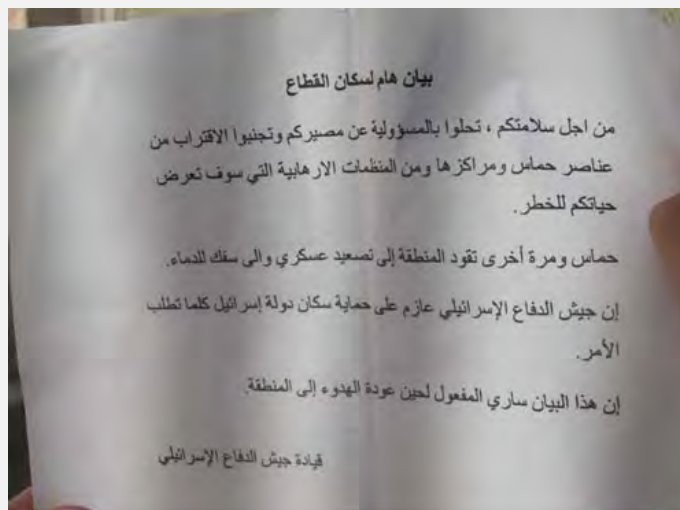 بيان هام لسكان القطاع
من اجل سلامتكم ، تحلوا بالمسؤولية عن مصيركم وتجنبوا الاقتراب من
عناصر حماس ومراكزها ومن المنظمات الارهابية التي سوف تعرض
حياتكم للخطر.
حماس ومرة أخرى تقود المنطقة إلى تصعيد عسكري والى سفك للدماء.
إن جيش الدفاع الإسرائيلي عازم على حماية سكان دولة إسرائيل كلما تطلب
الأمر.
إن هذا البيان ساري المفعول لحين عودة الهدوء إلى المنطقة.
قيادة جيش الدفاع الإسرائيلي